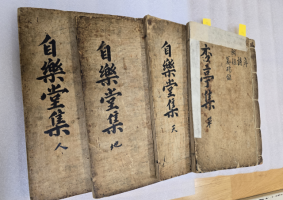 自樂堂集
人
自樂堂集
地
自樂堂集
天
亭集